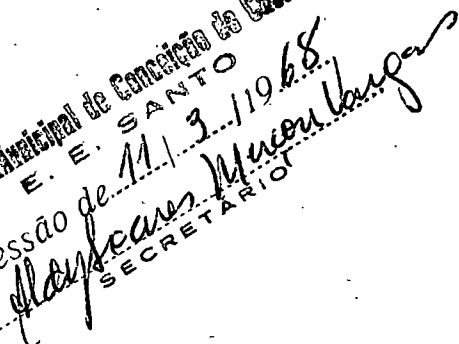 Municipal de Conceição do
E. E. SANTO
essão de 11 / 3 / 1968
Soares Vargas
SECRETARIO